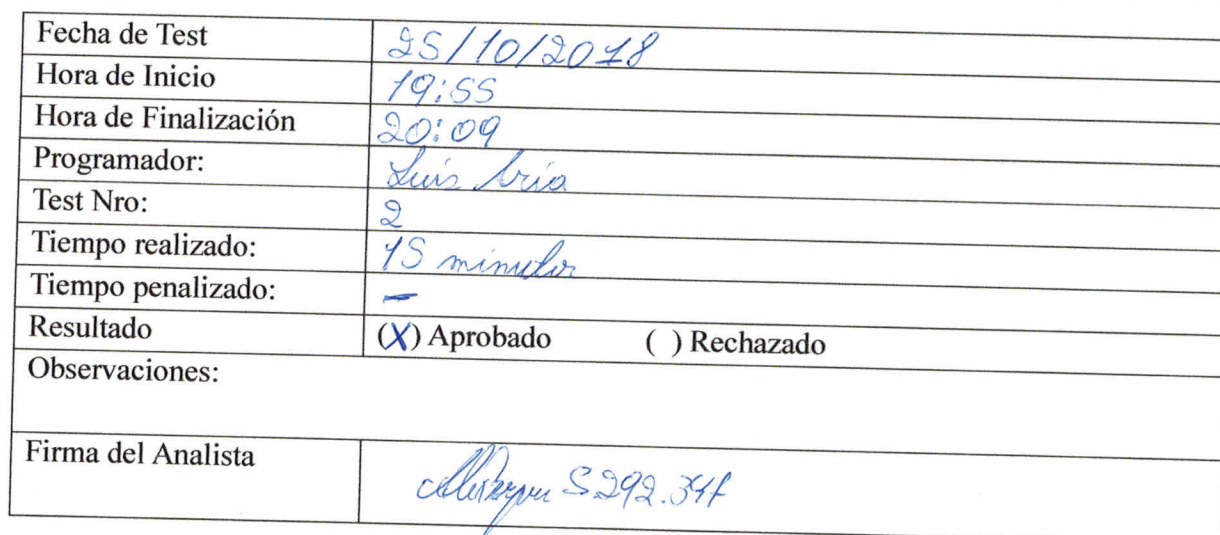 Fecha de Test 25/10/2018
Hora de Inicio 19:55
Hora de Finalización 20:09
Programador: Luis
Test Nro: 2
Tiempo realizado: 15 minutos
Tiempo penalizado: –
Resultado (X) Aprobado ( ) Rechazado
Observaciones:
Firma del Analista